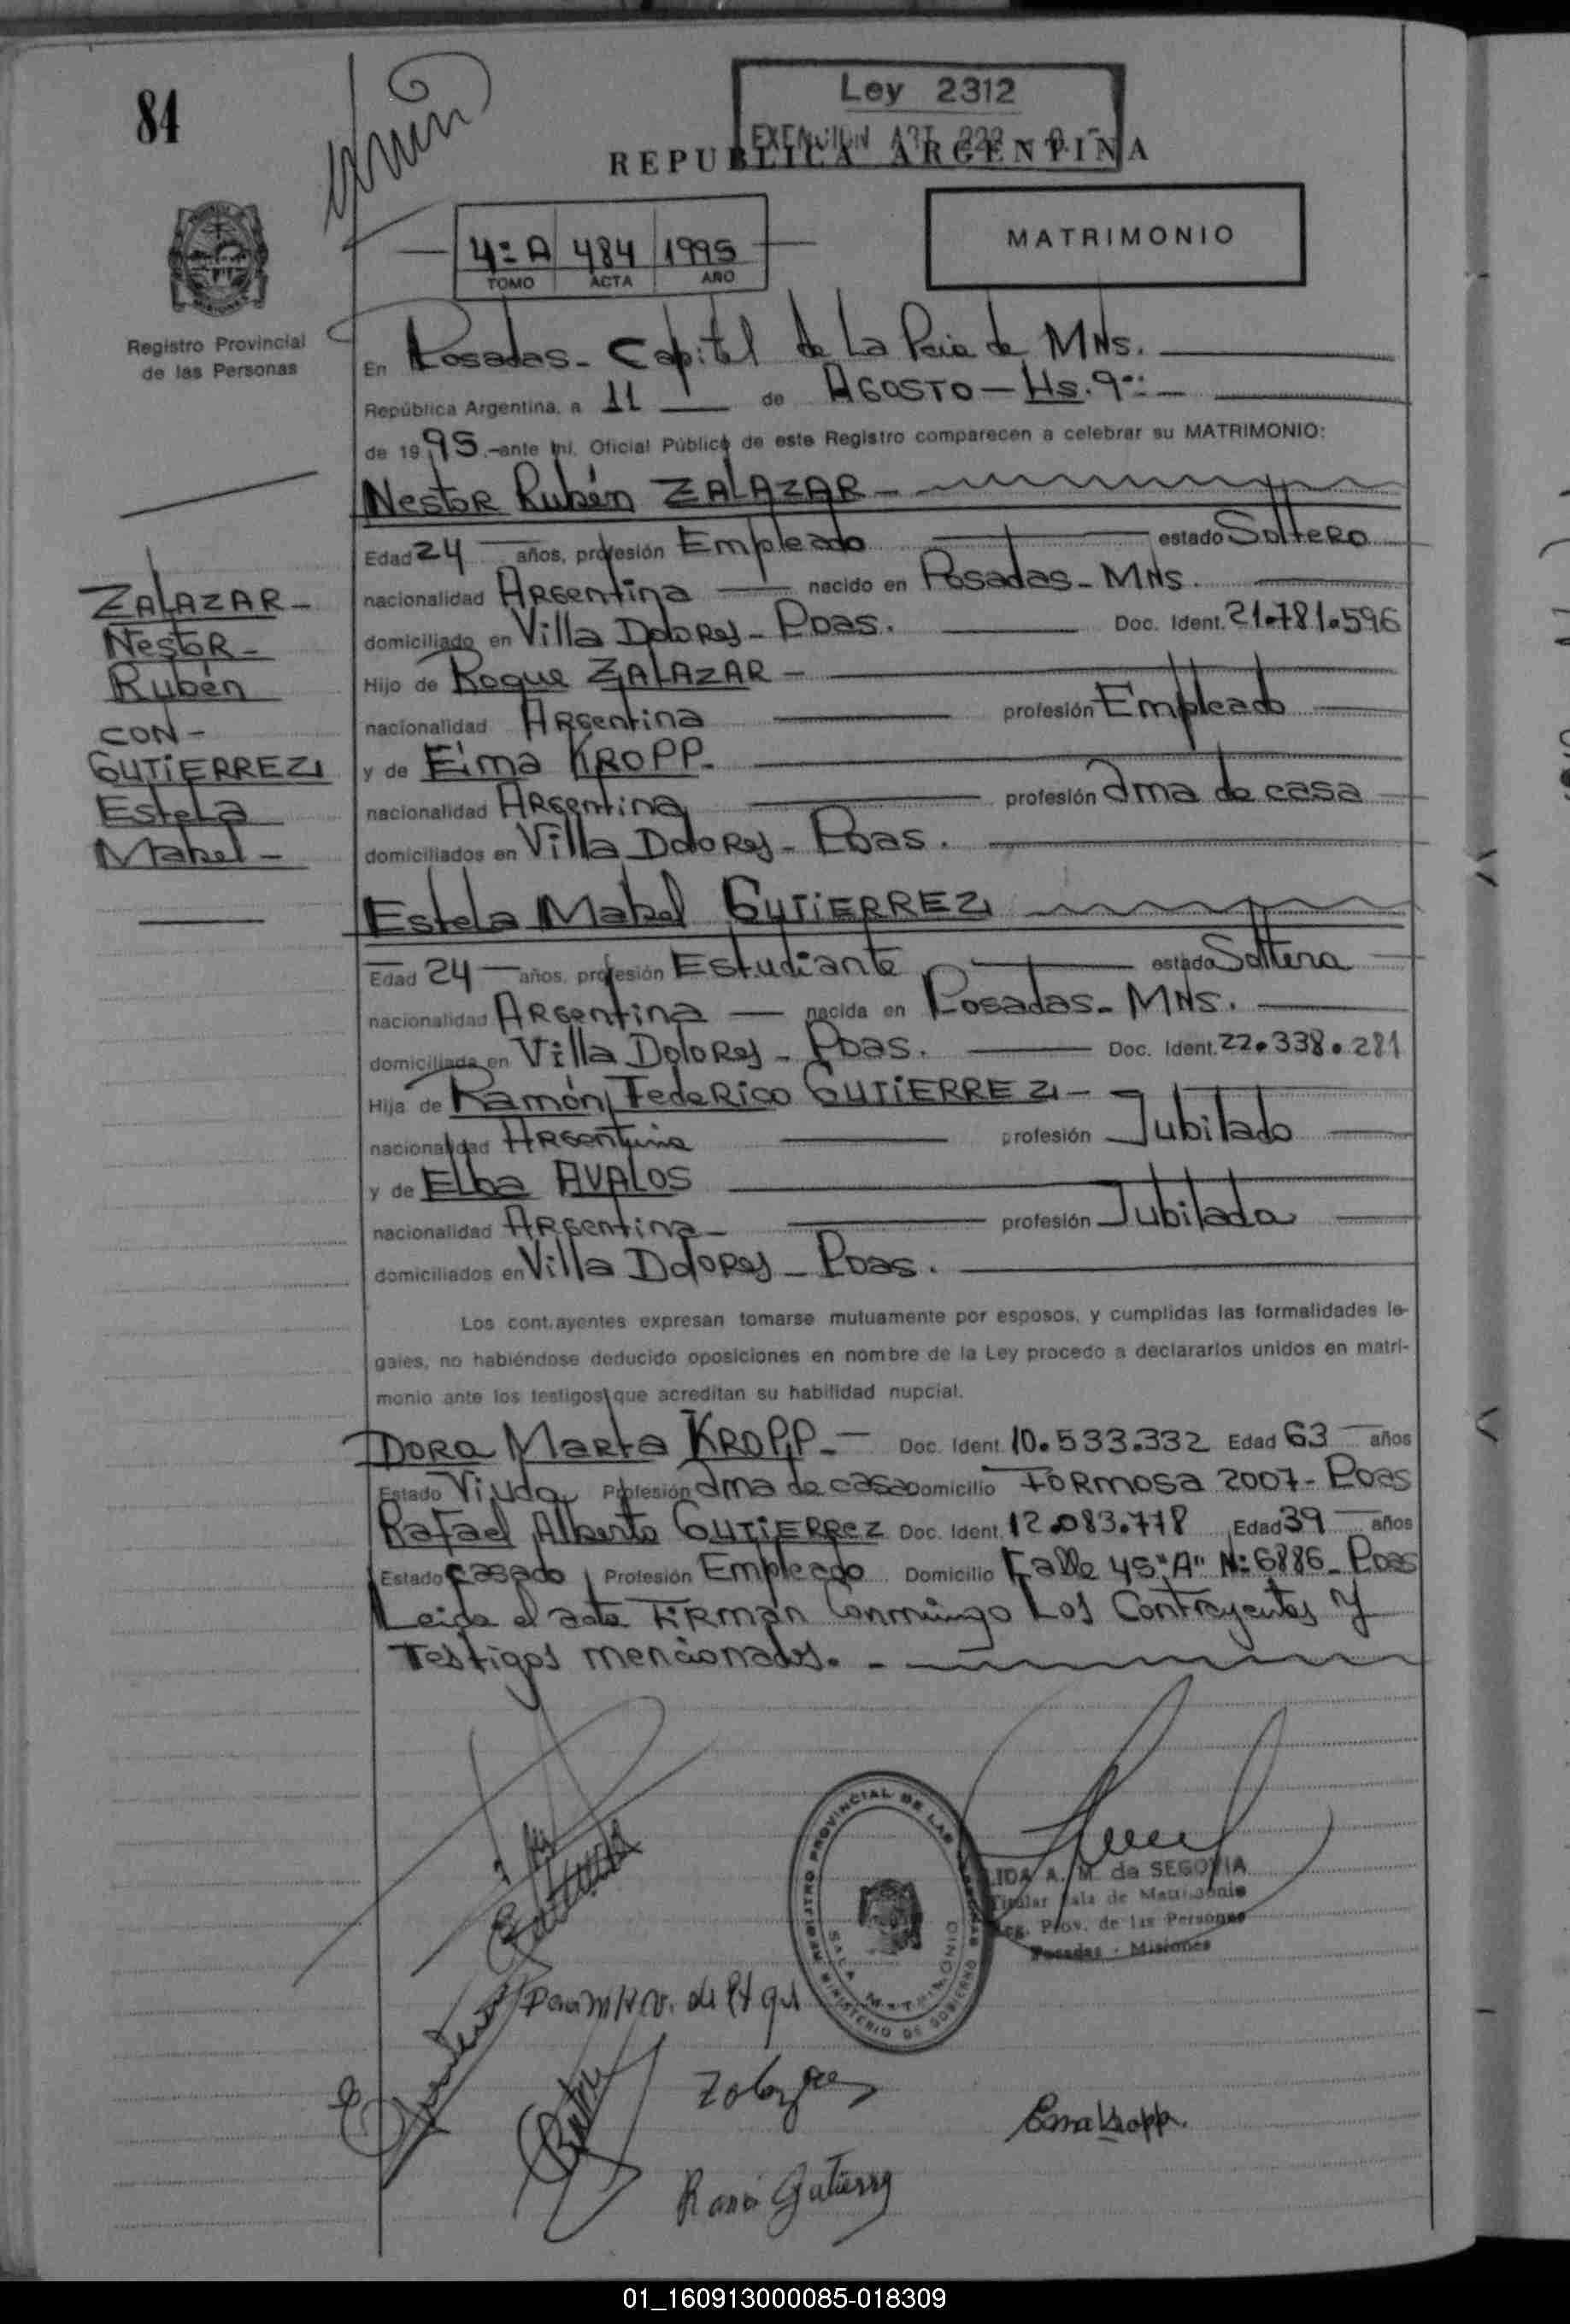 84
Ley 2312
EXENCION ART. 222
REPUBLICA ARGENTINA
4º A 484 1995
TOMO ACTA AÑO
MATRIMONIO
Registro Provincial
de las Personas
En Posadas - Capital de La Pcia de MNs.
República Argentina, a 11 de AGOSTO - Hs. 9
de 1995.-ante mí, Oficial Público de este Registro comparecen a celebrar su MATRIMONIO:
Nestor Rubén ZALAZAR -
Edad 24 años, profesión Empleado estado Soltero
nacionalidad Argentina nacido en Posadas - MNs.
domiciliado en Villa Dolores - Pdas. Doc. Ident. 21.781.596
Hijo de Roque ZALAZAR -
nacionalidad Argentina profesión Empleado
y de Ema KROPP.
nacionalidad Argentina profesión Ama de casa
domiciliados en Villa Dolores - Pdas.
ZALAZAR -
Nestor -
Rubén
CON -
GUTIERREZ
Estela
Mabel -
Estela Mabel GUTIERREZ
Edad 24 años, profesión Estudiante estado Soltera
nacionalidad Argentina nacida en Posadas - MNs.
domiciliada en Villa Dolores - Pdas. Doc. Ident. 22.338.281
Hija de Ramón Federico GUTIERREZ -
nacionalidad Argentina profesión Jubilado
y de Elba AVALOS
nacionalidad Argentina - profesión Jubilada
domiciliados en Villa Dolores - Pdas.
Los contrayentes expresan tomarse mutuamente por esposos, y cumplidas las formalidades le-
gales, no habiéndose deducido oposiciones en nombre de la Ley procedo a declararlos unidos en matri-
monio ante los testigos que acreditan su habilidad nupcial.
Dora Marta KROPP - Doc. Ident. 10.533.332 Edad 63 años
Estado Viuda Profesión Ama de casa Domicilio Formosa 2007 - Pdas
Rafael Alberto GUTIERREZ Doc. Ident. 12.083.778 Edad 39 años
Estado casado Profesión Empleado Domicilio Calle 45 "A" Nº 6886 - Pdas
Leida el acta Firman conmigo Los Contrayentes y
Testigos mencionados. -
REGISTRO PROVINCIAL DE LAS PERSONAS
SALA MATRIMONIO
MINISTERIO DE GOBIERNO
LIDA A. M. de SEGOVIA
Titular Sala de Matrimonio
Reg. Prov. de las Personas
Posadas - Misiones
Ema Kropp.
Ramón Gutierrez
01_160913000085-018309